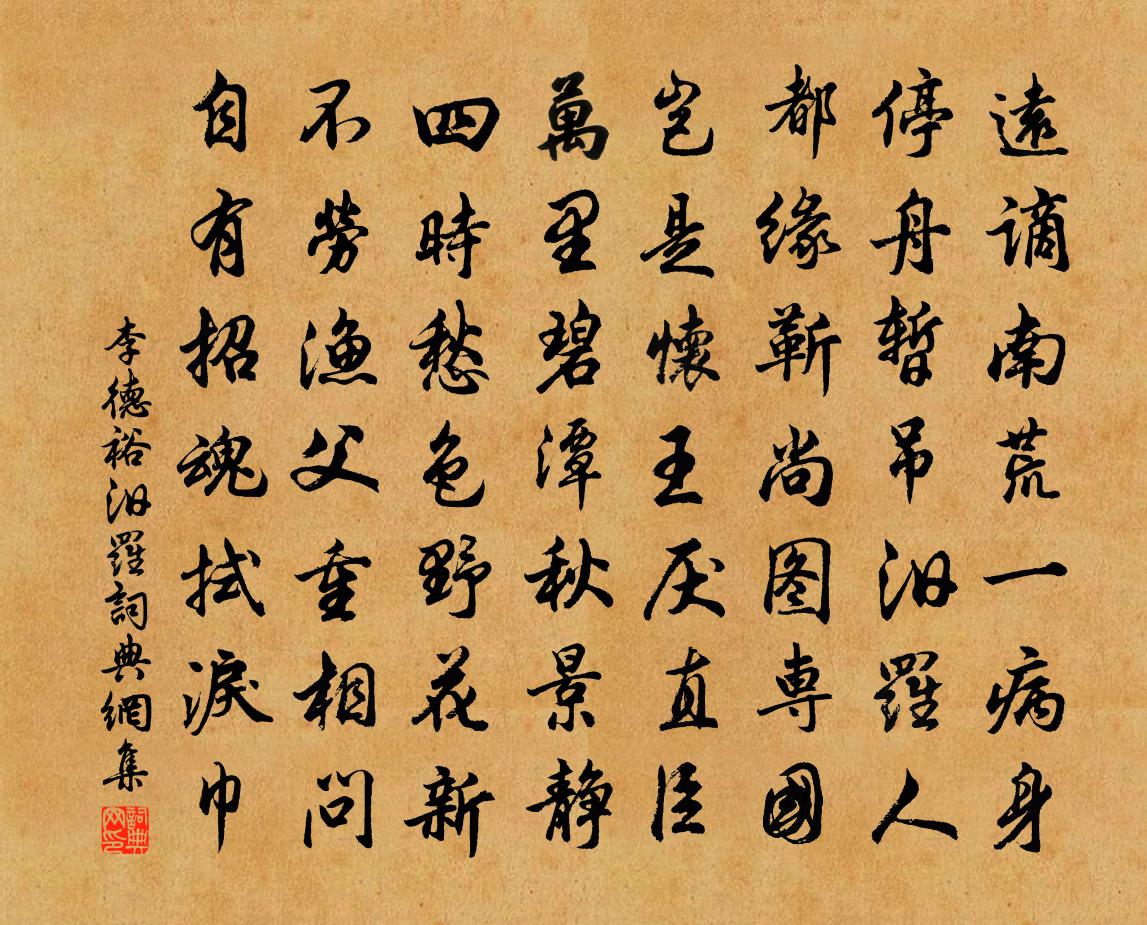 遠謫南荒一病身
停舟暫吊汨羅人
都緣靳尚图專國
豈是懷王厌直臣
萬里碧潭秋景静
四時愁色野花新
不勞漁父重相問
自有招魂拭淚巾
李德裕汨羅詞典網集
詞典网印